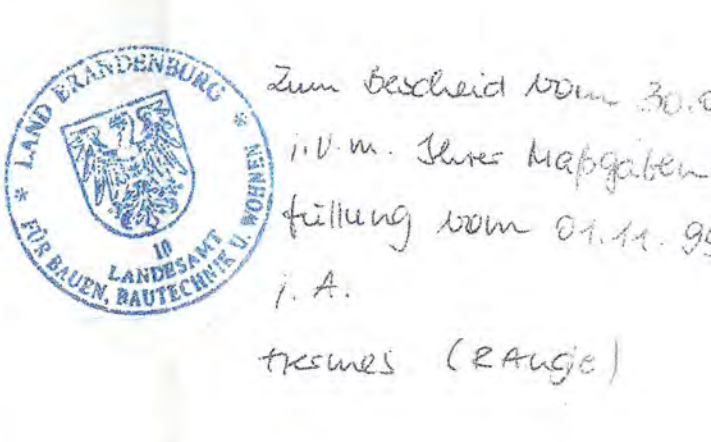 * LAND BRANDENBURG *
10
LANDESAMT
FÜR BAUEN, BAUTECHNIK U. WOHNEN
Zum Bescheid vom 30.0
i.V.m. Ihrer Maßgaben
füllung vom 01.11.95
i.A.
Hermes (RAngje)